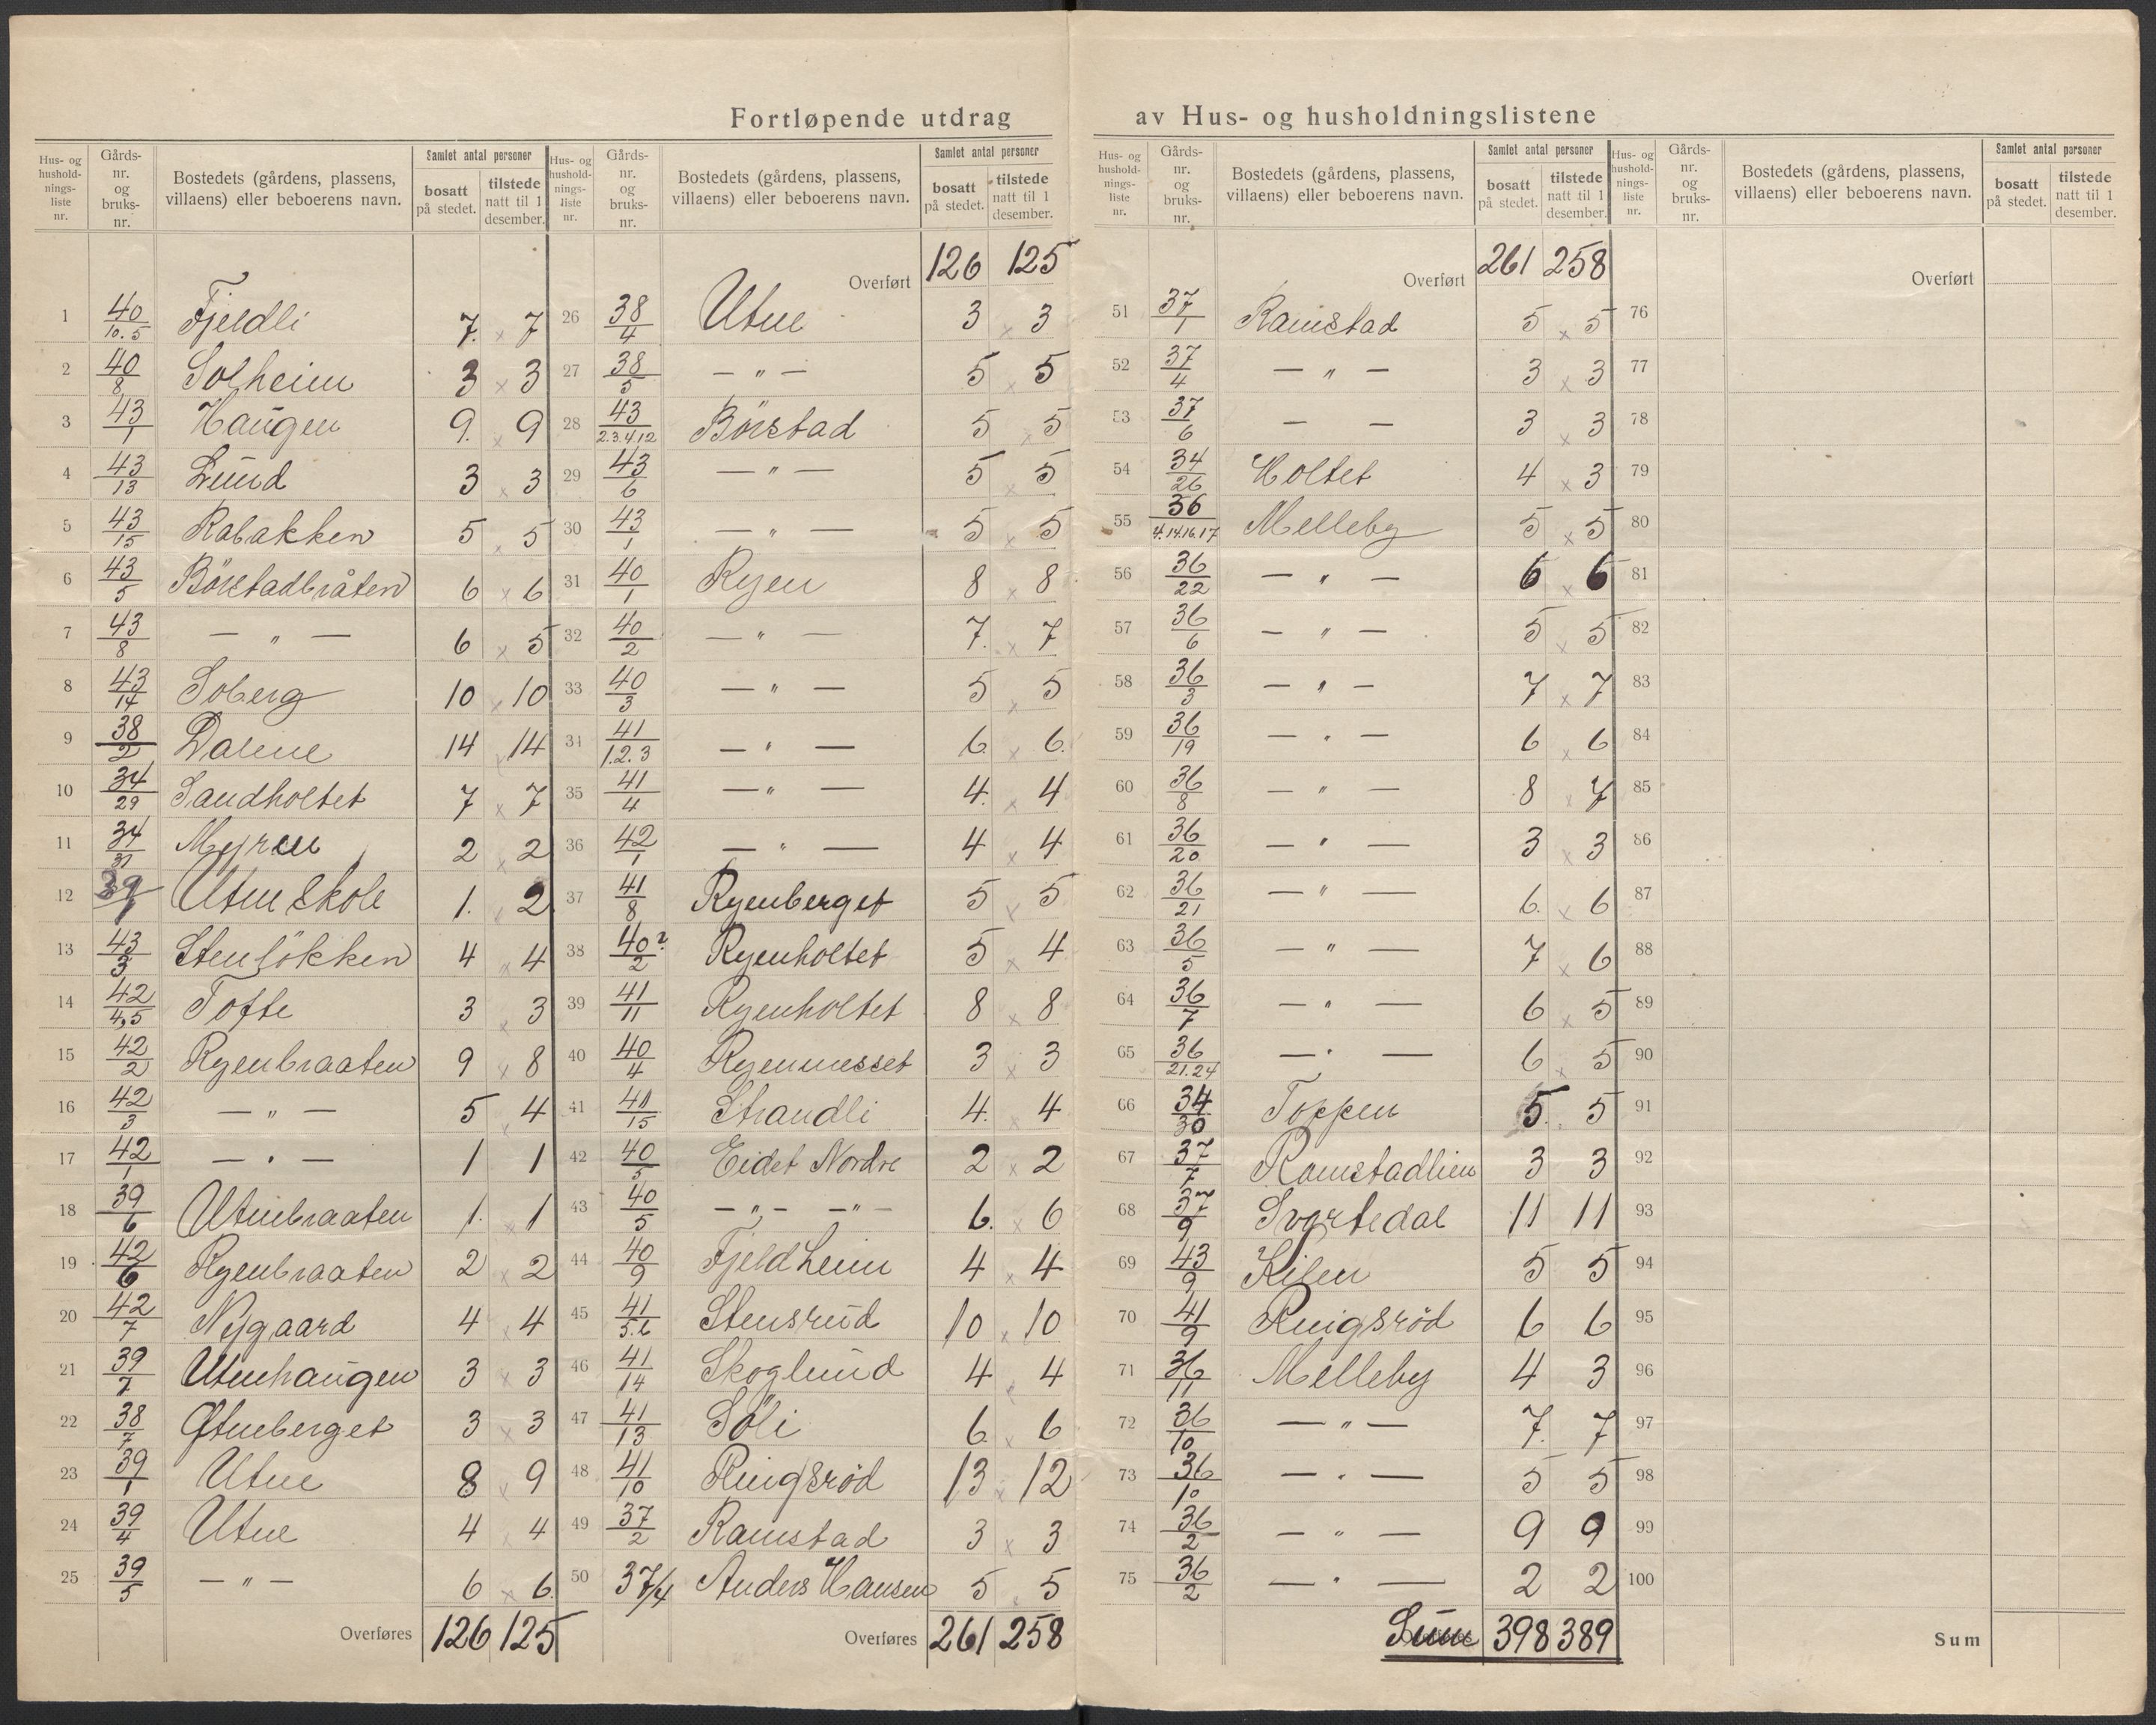 Fortløpende utdrag av Hus- og husholdningslistene
Hus- og husholdnings-liste nr. Gårds-nr. og bruks-nr. Bostedets (gårdens, plassens, villaens) eller beboerens navn. Samlet antal personer bosatt på stedet. tilstede natt til 1 desember.
1 40/10.5 Fjeldli 7 7
2 40/8 Solheim 3 3
3 43/1 Haugen 9 9
4 43/13 Lund 3 3
5 43/15 Rabakken 5 5
6 43/5 Börstadbråten 6 6
7 43/8 — " — 6 5
8 43/14 Soberg 10 10
9 38/2 Dalene 14 14
10 34/29 Sandholtet 7 7
11 34/31 Myren 2 2
12 39/1 Utne skole 1 2
13 43/3 Stenlökken 4 4
14 42/4,5 Tofte 3 3
15 42/2 Ryenbraaten 9 8
16 42/3 — " — 5 4
17 42/1 — " — 1 1
18 39/6 Utnebraaten 1 1
19 42/6 Ryenbraaten 2 2
20 42/7 Nygaard 4 4
21 39/7 Utnehaugen 3 3
22 38/7 Øtneberget 3 3
23 39/1 Utne 8 9
24 39/4 Utne 4 4
25 39/5 — " — 6 6
Overføres 126 125
Hus- og husholdnings-liste nr. Gårds-nr. og bruks-nr. Bostedets (gårdens, plassens, villaens) eller beboerens navn. Samlet antal personer bosatt på stedet. tilstede natt til 1 desember.
Overført 126 125
26 38/4 Utne 3 3
27 38/5 — " — 5 5
28 43/2.3.4.12 Börstad 5 5
29 43/6 — " — 5 5
30 43/1 — " — 5 5
31 40/1 Ryen 8 8
32 40/2 — " — 7 7
33 40/3 — " — 5 5
34 41/1.2.3 — " — 6 6
35 41/4 — " — 4 4
36 42/1 — " — 4 4
37 41/8 Ryenberget 5 5
38 40?/2 Ryenholtet 5 4
39 41/11 Ryenholtet 8 8
40 40/4 Ryenmesset 3 3
41 /15 Strandli 4 4
42 40/5 Eidet Nordre 2 2
43 40/5 — " — — " — 6 6
44 40/9 Fjeldheim 4 4
45 41/5.6 Stensrud 10 10
46 41/14 Skoglund 4 4
47 41/13 Söli 6 6
48 41/10 Ringsrød 13 12
49 37/2 Ramstad 3 3
50 37/4 Anders Hansen 5 5
Overføres 261 258
Hus- og husholdnings-liste nr. Gårds-nr. og bruks-nr. Bostedets (gårdens, plassens, villaens) eller beboerens navn. Samlet antal personer bosatt på stedet. tilstede natt til 1 desember.
Overført 261 258
51 37/1 Ramstad 5 5
52 37/4 — " — 3 3
53 37/6 — — 3 3
54 34/26 Holtet 4 3
55 36/4.14.16.17 Melleby 5 5
56 36/22 — " — 6 6
57 36/6 — " — 5 5
58 36/3 — " — 7 7
59 36/19 — " — 6 6
60 36/8 — " — 8 7
61 36/20 — " — 3 3
62 36/21 — " — 6 6
63 36/5 — " — 7 6
64 36/7 — " — 6 5
65 36/21.24 — " — 6 5
66 34/30 Toppen 5 5
67 37/7 Ramstadlien 3 3
68 37/9 Svartedal 11 11
69 43/9 Kilen 5 5
70 41/9 Ringsrød 6 6
71 36/11 Melleby 4 3
72 36/10 — " — 7 7
73 36/10 — " — 5 5
74 36/2 — " — 9 9
75 36/2 — " — 2 2
Sum 398 389
Hus- og husholdnings-liste nr. Gårds-nr. og bruks-nr. Bostedets (gårdens, plassens, villaens) eller beboerens navn. Samlet antal personer bosatt på stedet. tilstede natt til 1 desember.
Overført
76
77
78
79
80
81
82
83
84
85
86
87
88
89
90
91
92
93
94
95
96
97
98
99
100
Sum